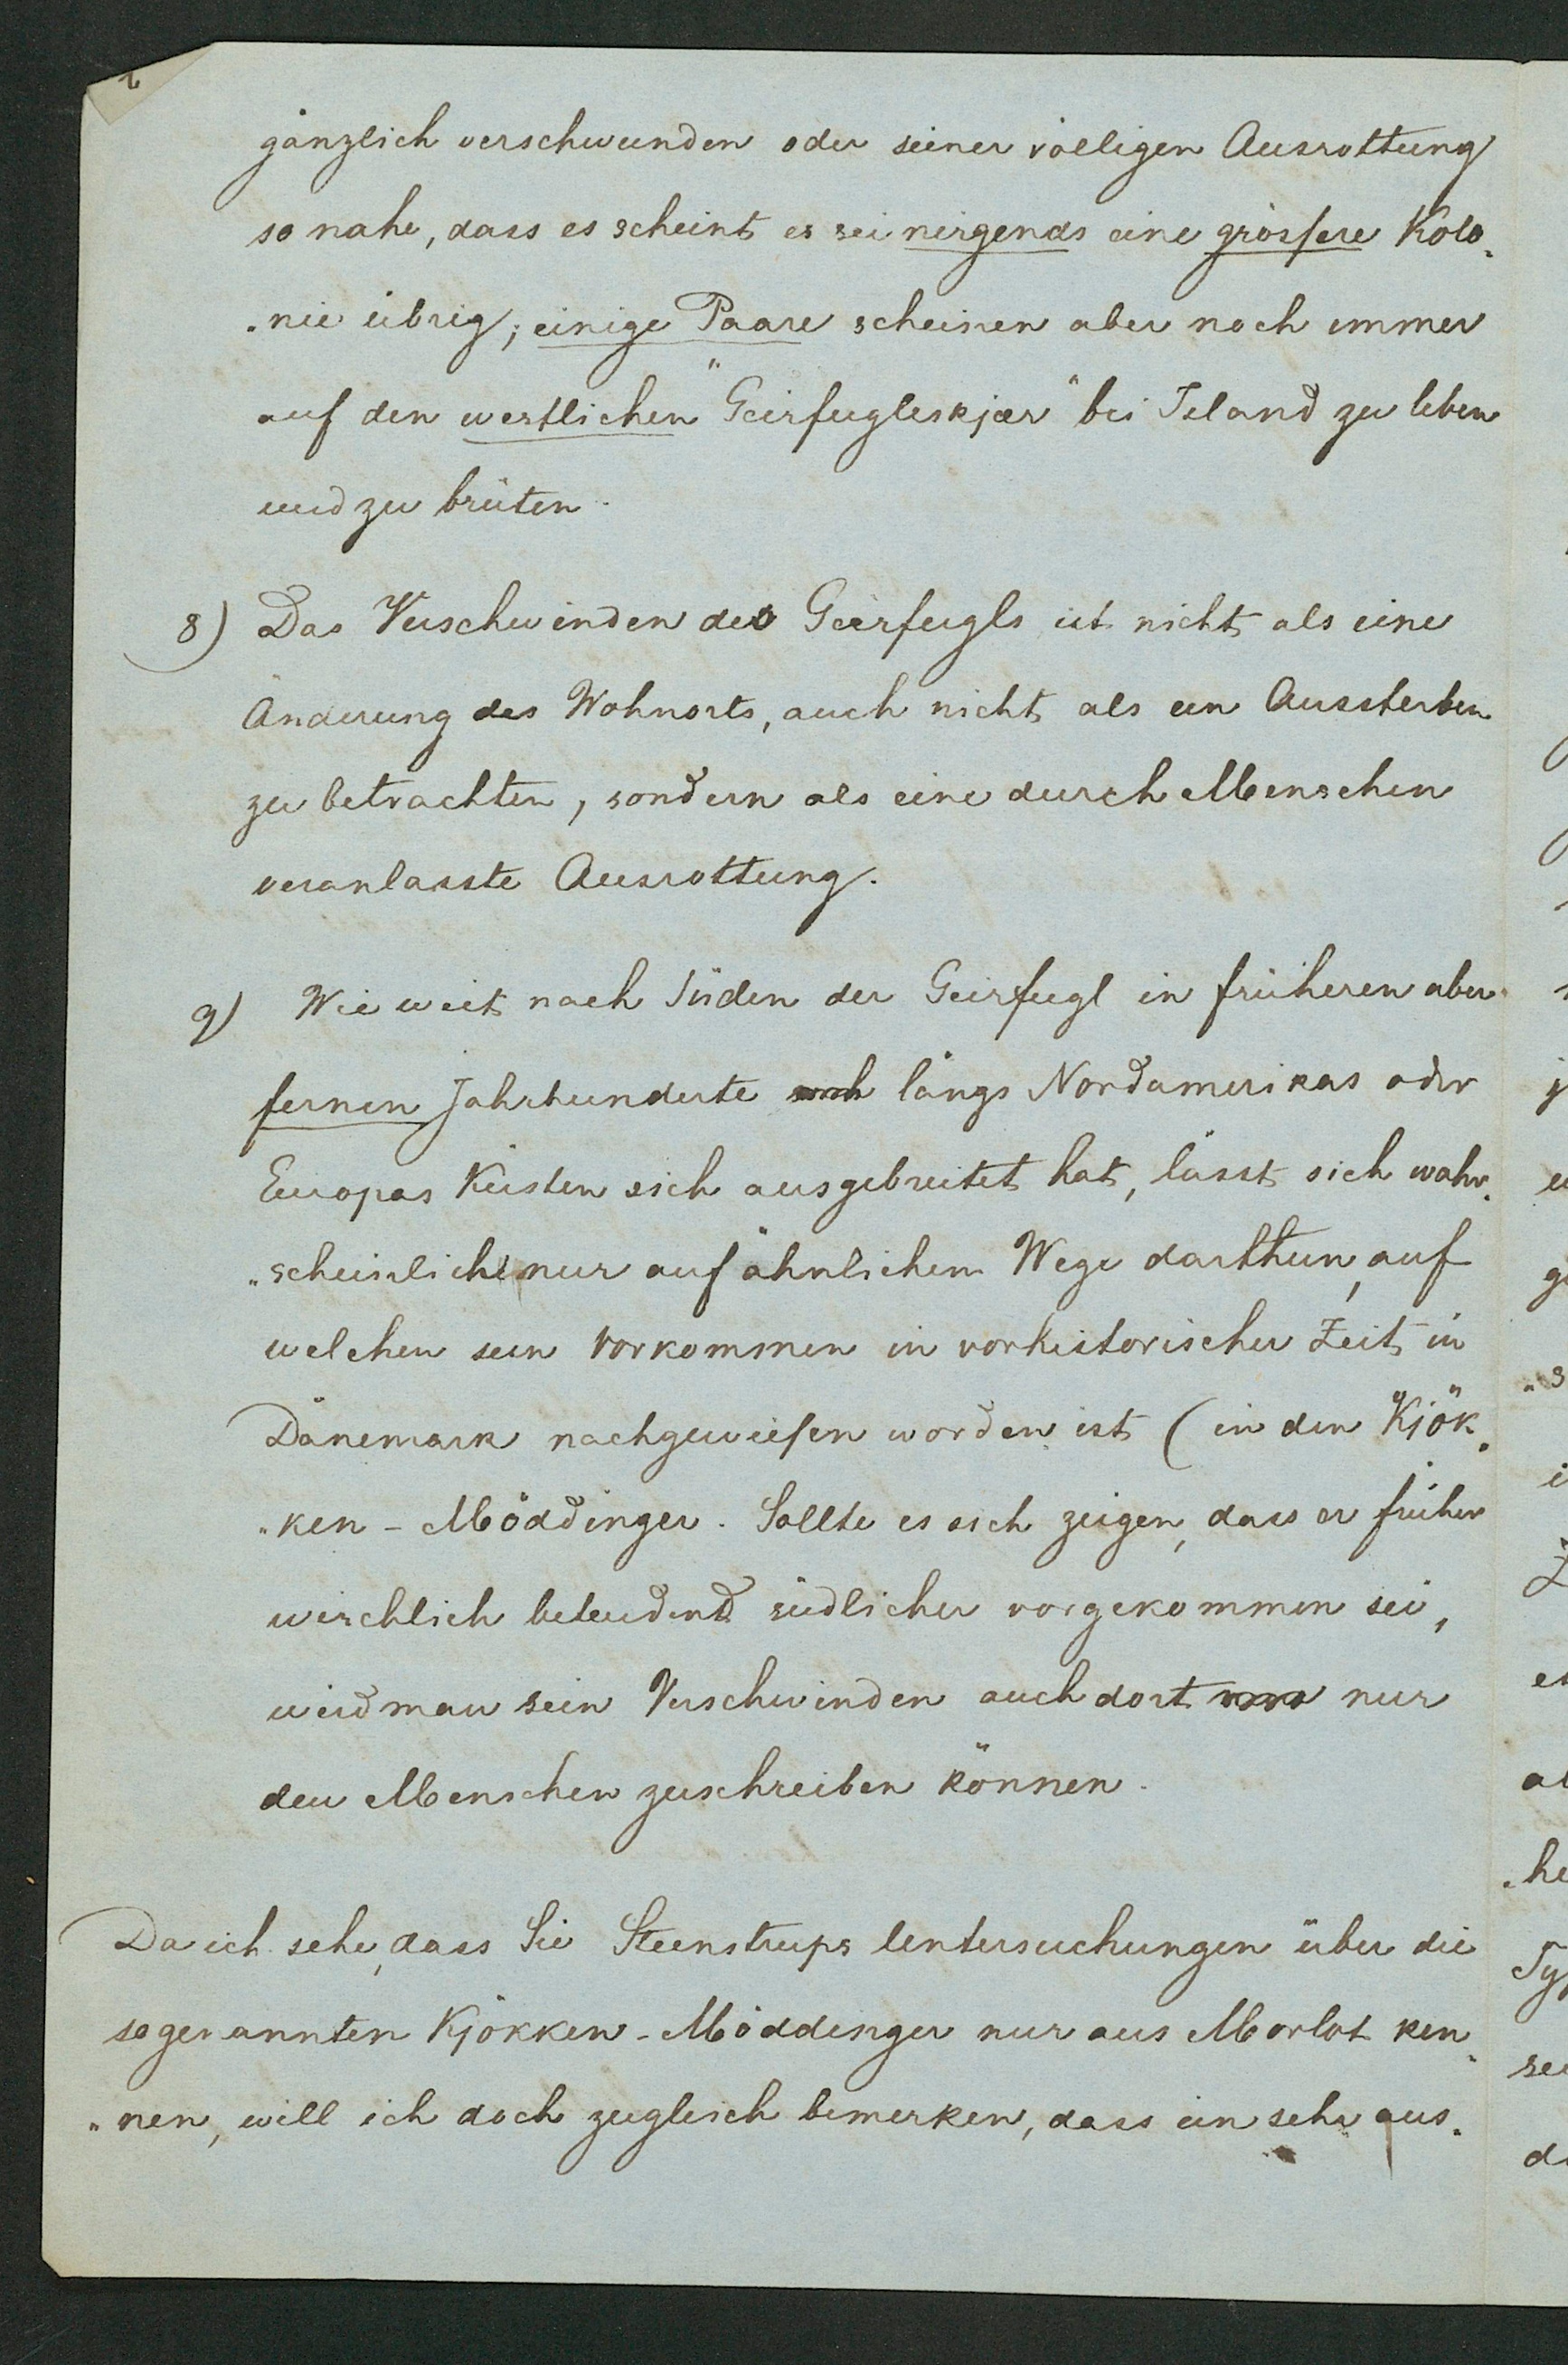 gänzlich verschwunden oder seiner völligen Ausrottung
so nahe, dass es scheint es sei nirgends eine grössere Kolo„
„nie übrig; einige Paare scheinen aber noch immer
auf den westlichen "Geirfugleskjær" bei Island zu leben
und zu brüten.
8) Das Verschwinden des Geirfugls ist nicht als eine
Änderung des Wohnorts, auch nicht als ein Aussterben
zu betrachten, sondern als eine durch Menschen
veranlasste Ausrottung.
9) Wie weit nach Süden der Geirfugl in früheren aber
fernen Jahrhunderte längs Nordamerikas oder
Europas Küsten sich ausgebreitet hat, lässt sich wahr„
„scheinlich nur auf ähnlichem Wege darthun, auf
welchen sein Vorkommen in vorhistorischer Zeit in
Dänemark nachgewiesen worden ist (in den Kjök„
„ken-Möddinger. Sollte es sich zeigen, dass er früher
wirchlich beteudend südlicher vorgekommen sei,
wird man sein Verschwinden auch dort nur
den Menschen zuschreiben können.
Da ich sehe, dass Sie Steenstrups Untersuchungen über die
sogenannten Kjökken-Möddinger nur aus Morlot ken„
„nen, will ich doch zugleich bemerken, dass ein sehr aus„